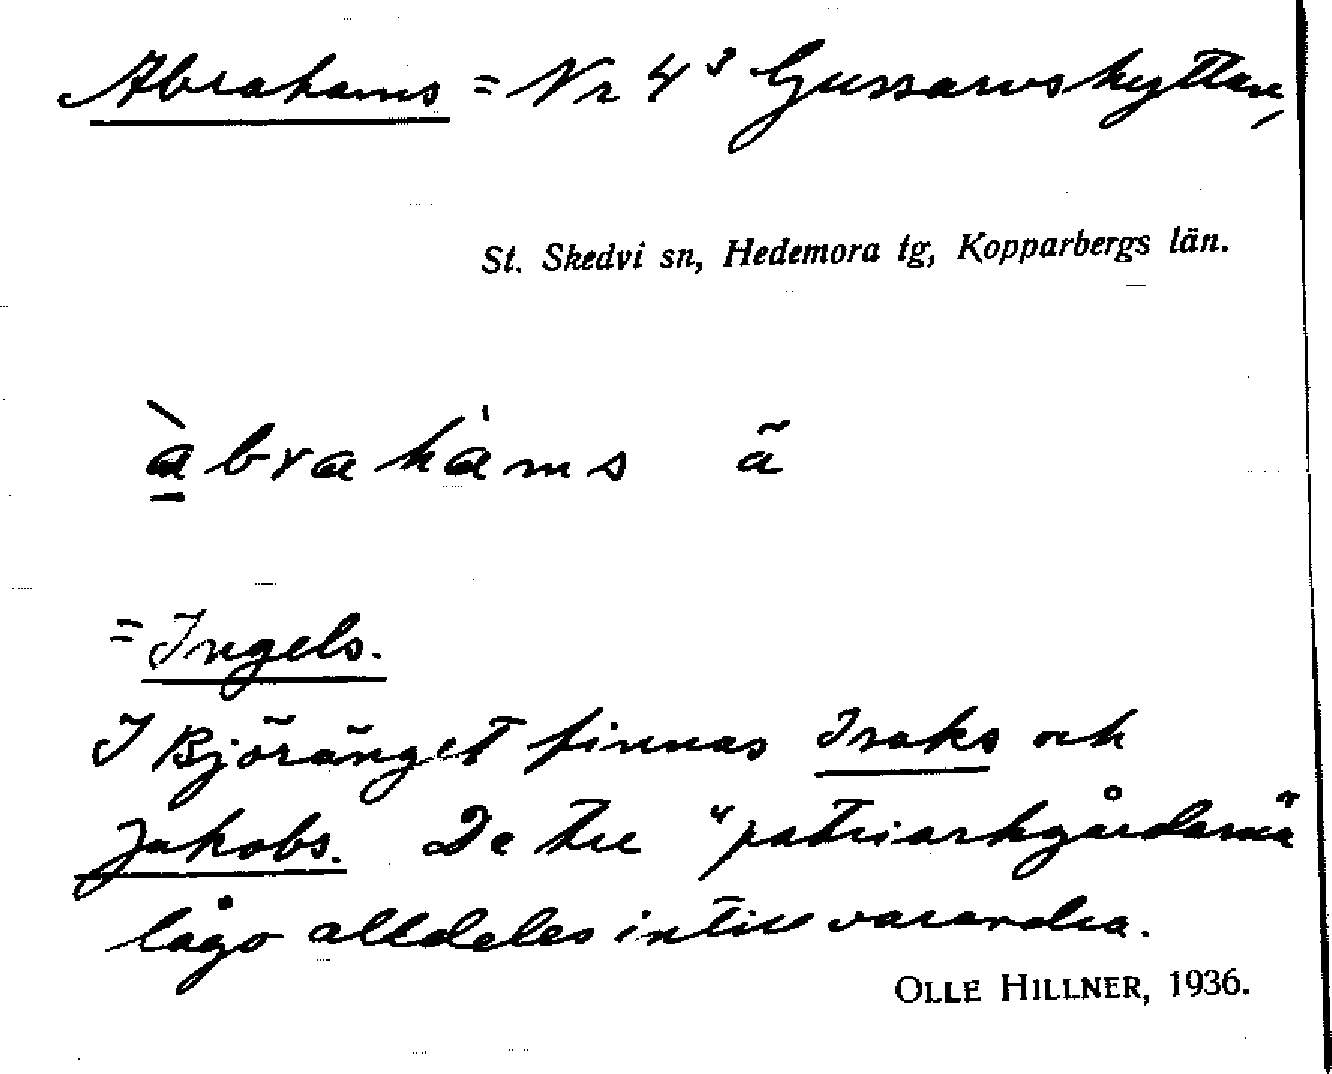 Abrahams = Nr 4³ Gussarvshyttan,
St. Skedvi sn, Hedemora tg, Kopparbergs län.
àbrahàms ã
= Ingels.
I Björänget finnas Isaks och
Jakobs. De tre "patriarkgårdarna"
lågo alldeles intill varandra.
OLLE HILLNER, 1936.